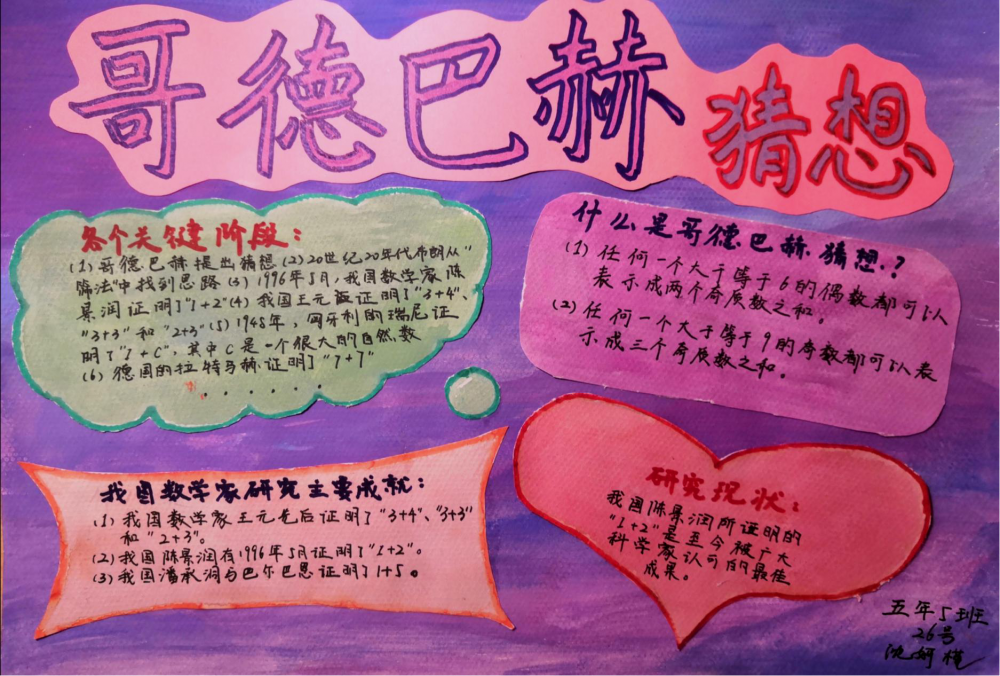 哥德巴赫猜想
各个关键阶段：
(1)哥德巴赫提出猜想(2)20世纪20年代布朗从"
筛法"中找到思路(3)1996年5月，我国数学家陈
景润证明了"1+2"(4)我国王元证明了"3+4"、
"3+3"和"2+3"(5)1948年，匈牙利的瑞尼证
明了"1+C"，其中C是一个很大的自然数
(6)德国的拉特马赫证明了"7+7"
······
什么是哥德巴赫猜想？
(1)任何一个大于等于6的偶数都可以
表示成两个奇质数之和。
(2)任何一个大于等于9的奇数都可以表
示成三个奇质数之和。
我国数学家研究主要成就：
(1)我国数学家王元先后证明了"3+4"、"3+3"
和"2+3"。
(2)我国陈景润有1996年5月证明了"1+2"。
(3)我国潘承洞与巴尔巴恩证明了1+5。
研究现状：
我国陈景润所证明的
"1+2"是至今被广大
科学家认可的最佳
成果。
五年5班
26号
沈